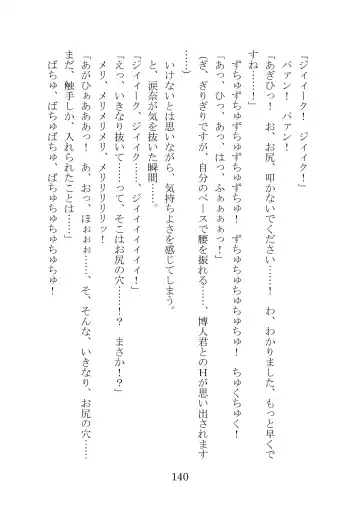 「ジィィーク！　ジィィク！」
パァン！　パァン！
「あぎひっ！　お、お尻、叩かないでください……！　わ、わかりました、もっと早くで
すね……！」
ずちゅずちゅずちゅずちゅずちゅ！　ずちゅちゅちゅちゅちゅ！　ちゅくちゅく！
「あっ、ひっ、あっ、はっ、ふぁぁぁぁっ！」
(ぎ、ぎりぎりですが、自分のペースで腰を振れる……、博人君とのＨが思い出されます
……)
いけないとは思いながら、気持ちよさを感じてしまう。
と、涙奈が気を抜いた瞬間……。
「ジィィーク、ジィイク……、ジィィイイイイイ！」
「えっ、いきなり抜いて……って、そこはお尻の穴……！？　まさか！？」
メリ、メリメリメリ、メリリリリッ！
「あがひぁああああっ！　あ、おっ、ほぉぉぉ……、そ、そんな、いきなり、お尻の穴……
まだ、触手しか、入れられたことは……」
ばちゅ、ばちゅばちゅ、ばちゅちゅちゅちゅ！
140